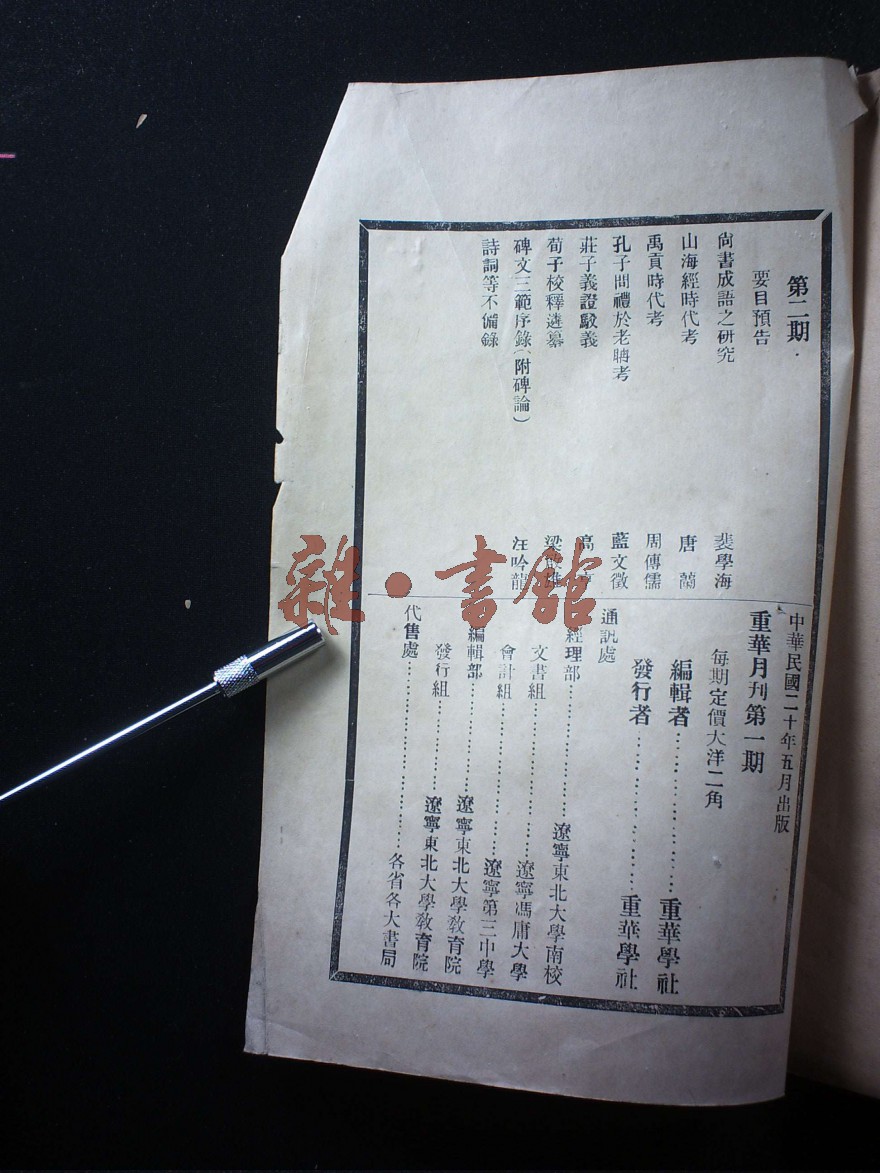 第二期
要目預告
尙書成語之研究　裴學海
山海經時代考　唐蘭
禹貢時代考　周傳儒
孔子問禮於老聃考　藍文徵
莊子義證駁義　高亨
荀子校釋　梁啟雄
碑文三範序錄（附碑論）　汪吟龍
詩詞等不備錄
中華民國二十年五月出版
重華月刊第一期
每期定價大洋二角
編輯者…………………重華學社
發行者…………………重華學社
通訊處
經理部…………………遼寧東北大學南校
文書組…………………遼寧馮庸大學
會計組…………………遼寧第三中學
編輯部…………………遼寧東北大學敎育院
發行組…………………遼寧東北大學敎育院
代售處…………………各省各大書局
雜·書館